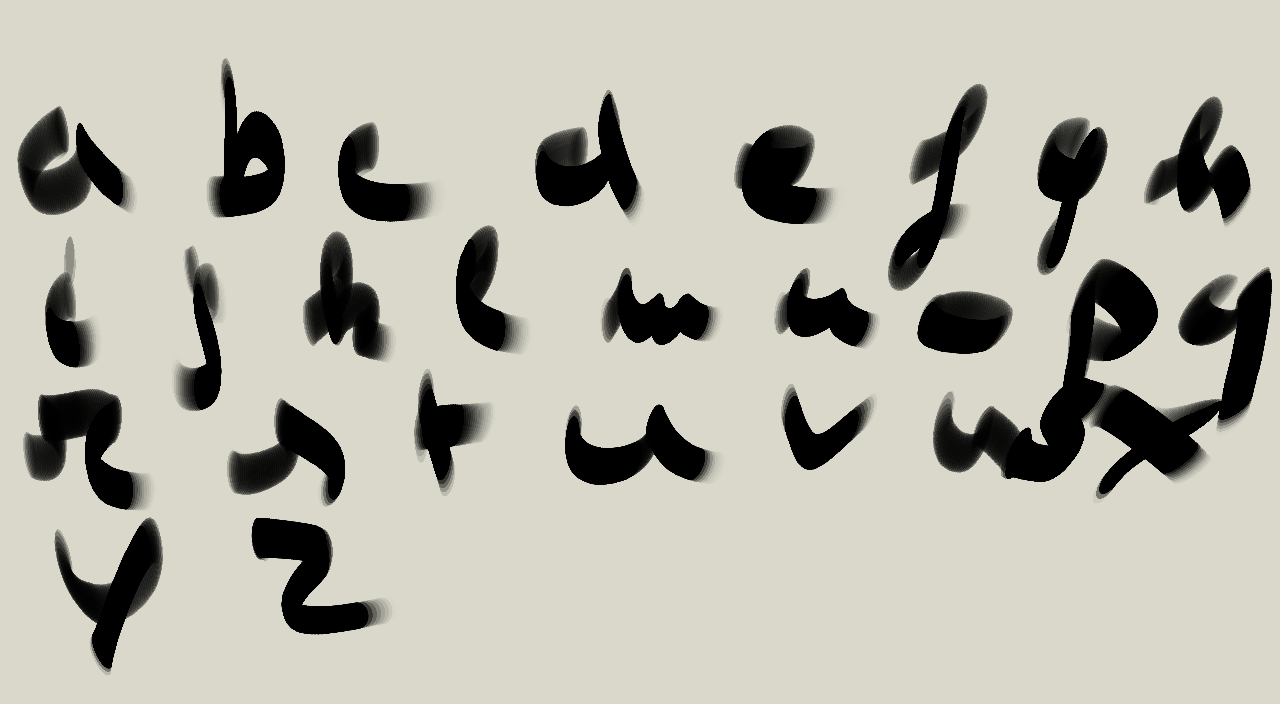 a b c d e f g h
i j k l m n o p q
r s t u v w x
y z